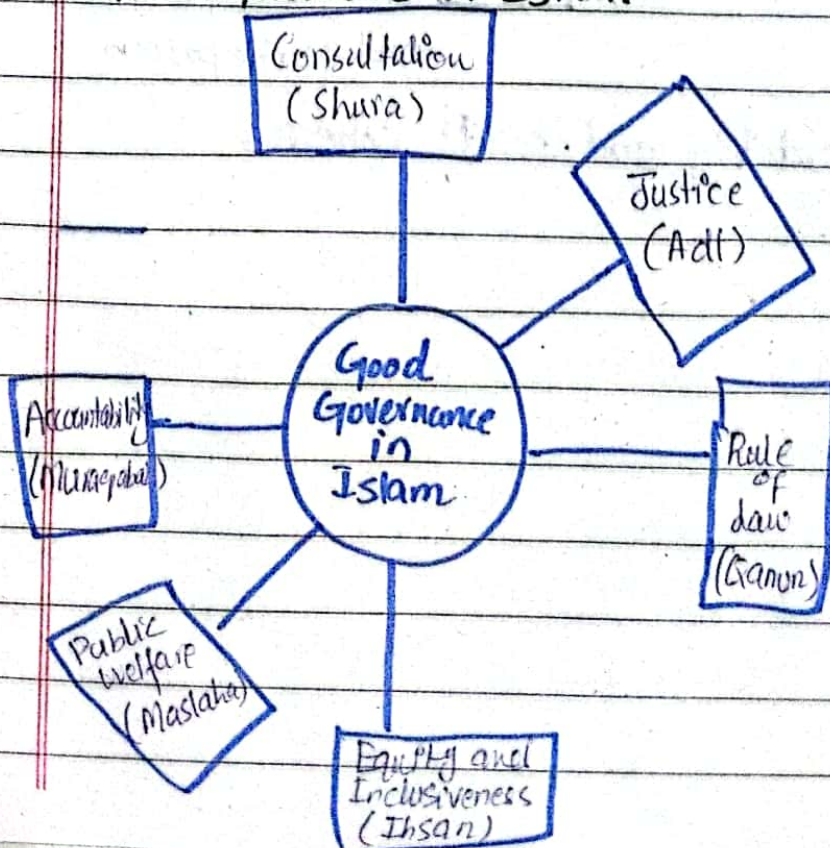 Consultation
(Shura)
Justice
(Adl)
Good
Governance
in
Islam
Accountability
(Muraqabah)
Rule
of
Law
(Qanun)
Public
welfare
(Maslaha)
Equity and
Inclusiveness
(Ihsan)